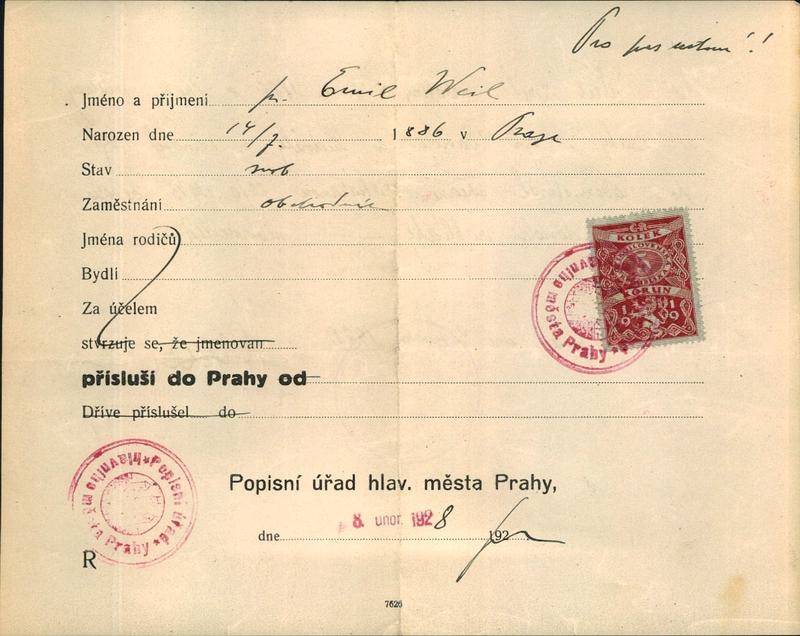 Pro pas ustou!!
Jméno a přijmení p. Emil Weil
Narozen dne 14/7. 1886 v Praze
Stav svob
Zaměstnání obchodník
Jména rodičů
Bydlí
Za účelem
stvrzuje se, že jmenovan
přísluší do Prahy od
Dříve příslušel do
KOLEK
KORUN
1919
Popisní úřad hlavního města Prahy
Popisní úřad hlav. města Prahy,
dne 8. únor. 1928 192
R
7626